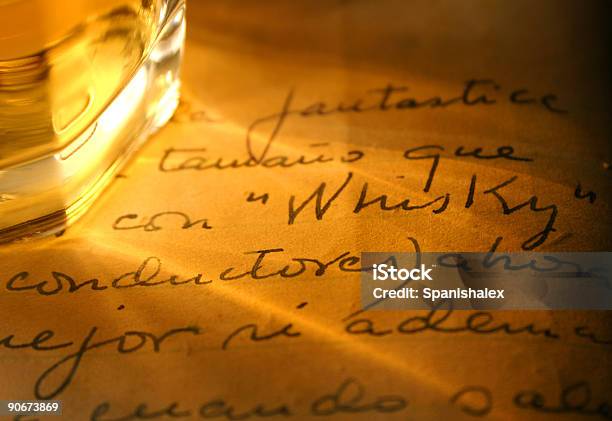 a fantastico
tamaño que
con "Whisky"
conductores) ahora
mejor si además
cuando sale
iStock
Credit: Spanishalex
90673869